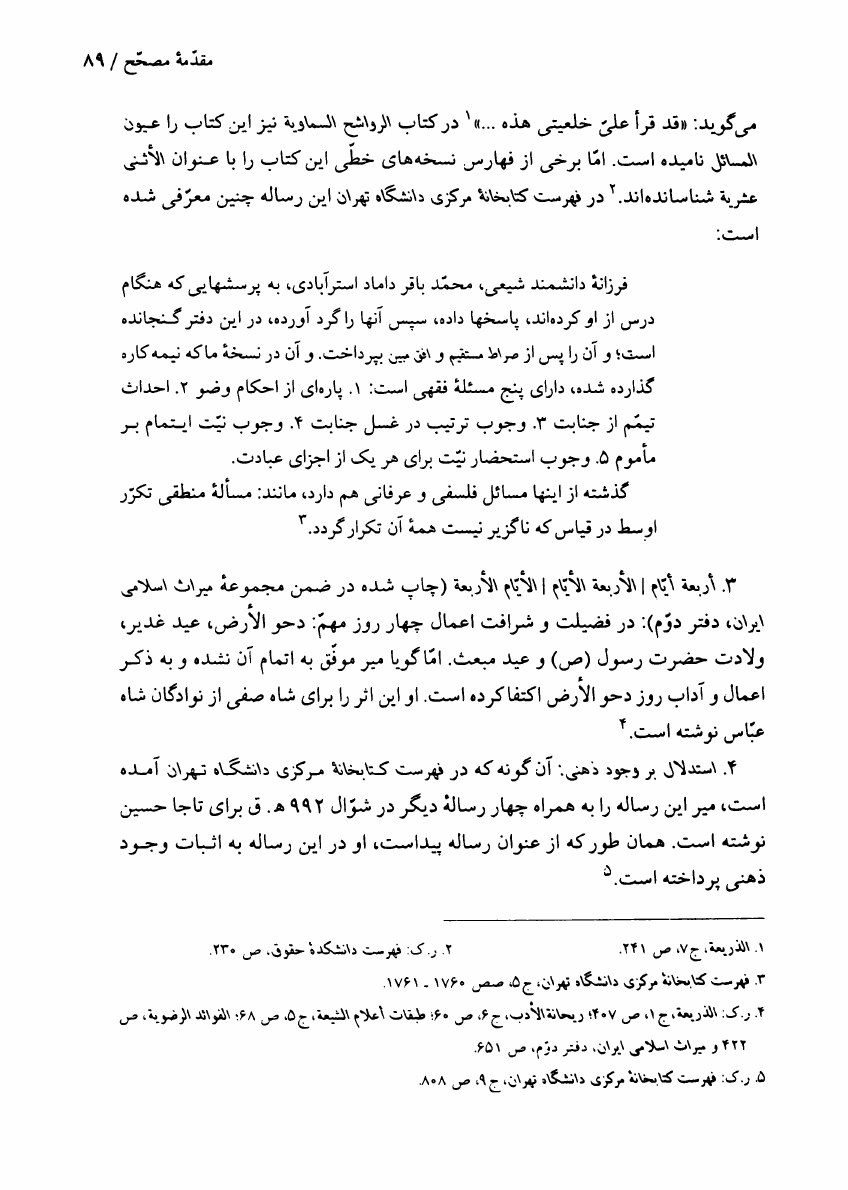 مقدّمهٔ مصحّح / ۸۹
می‌گوید: «قد قرأ علیّ خلعیتی هذه ...»۱ در کتاب الرواشح السماویة نیز این کتاب را عیون
المسائل نامیده است. امّا برخی از فهارس نسخه‌های خطّی این کتاب را با عنوان الأثنی
عشریة شناسانده‌اند.۲ در فهرست کتابخانهٔ مرکزی دانشگاه تهران این رساله چنین معرّفی شده
است:
فرزانهٔ دانشمند شیعی، محمّد باقر داماد استرآبادی، به پرسشهایی که هنگام
درس از او کرده‌اند، پاسخها داده، سپس آنها را گرد آورده، در این دفتر گنجانده
است؛ و آن را پس از صراط مستقیم و افق مبین بپرداخت. و آن در نسخهٔ ما که نیمه کاره
گذارده شده، دارای پنج مسئلهٔ فقهی است: ۱. پاره‌ای از احکام وضو ۲. احداث
تیمّم از جنابت ۳. وجوب ترتیب در غسل جنابت ۴. وجوب نیّت ایتمام بر
مأموم ۵. وجوب استحضار نیّت برای هر یک از اجزای عبادت.
گذشته از اینها مسائل فلسفی و عرفانی هم دارد، مانند: مسألهٔ منطقی تکرّر
اوسط در قیاس که ناگزیر نیست همهٔ آن تکرار گردد.۳
۳. أربعة أیّام | الأربعة الأیّام | الأیّام الأربعة (چاپ شده در ضمن مجموعهٔ میراث اسلامی
ایران، دفتر دوّم): در فضیلت و شرافت اعمال چهار روز مهمّ: دحو الأرض، عید غدیر،
ولادت حضرت رسول (ص) و عید مبعث. امّا گویا میر موفّق به اتمام آن نشده و به ذکر
اعمال و آداب روز دحو الأرض اکتفا کرده است. او این اثر را برای شاه صفی از نوادگان شاه
عبّاس نوشته است.۴
۴. استدلال بر وجود ذهنی: آن گونه که در فهرست کتابخانهٔ مرکزی دانشگاه تهران آمده
است، میر این رساله را به همراه چهار رسالهٔ دیگر در شوّال ۹۹۲ ه‍. ق برای تاجا حسین
نوشته است. همان طور که از عنوان رساله پیداست، او در این رساله به اثبات وجود
ذهنی پرداخته است.۵
۱. الذریعة، ج۷، ص ۲۴۱. ۲. ر.ک: فهرست دانشکدهٔ حقوق، ص ۲۳۰.
۳. فهرست کتابخانهٔ مرکزی دانشگاه تهران، ج۵، صص ۱۷۶۰ ـ ۱۷۶۱.
۴. ر.ک: الذریعة، ج۱، ص ۴۰۷؛ ریحانةالأدب، ج۶، ص ۶۰؛ طبقات أعلام الشیعة، ج۵، ص ۶۸؛ الفوائد الرضویة، ص
۴۲۲ و میراث اسلامی ایران، دفتر دوّم، ص ۶۵۱.
۵. ر.ک: فهرست کتابخانهٔ مرکزی دانشگاه تهران، ج۹، ص ۸۰۸.